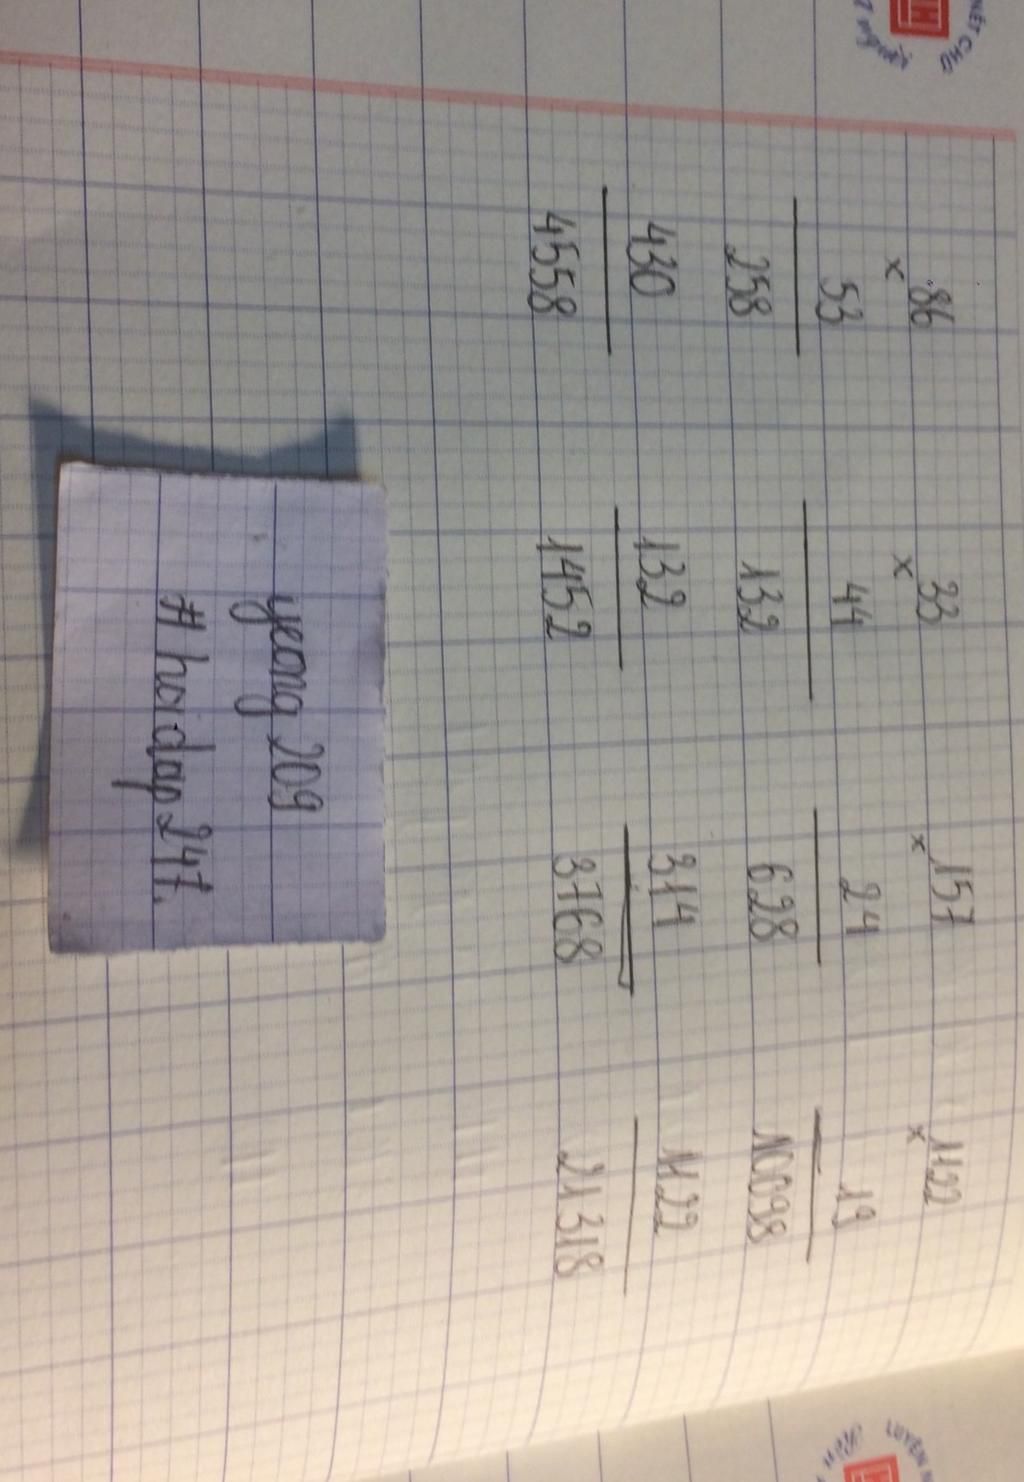 86
x
53
258
430
4558
33
x
44
132
132
1452
157
x
24
628
314
3768
1122
x
19
10098
1122
21318
yeong 209
# hoidap 247.